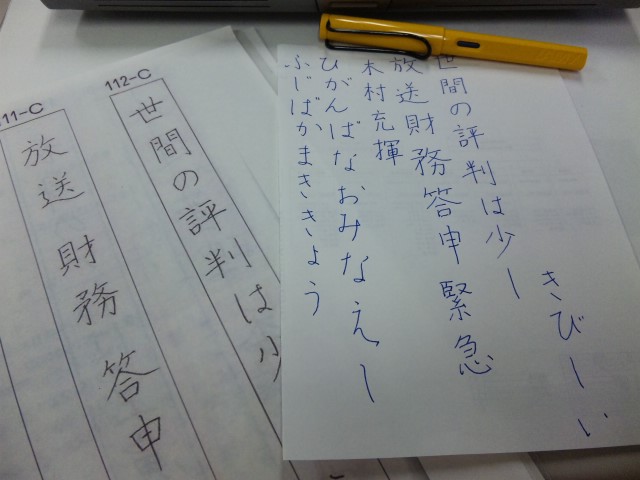 世間の評判は少し
きびしい
放送財務答申緊急
木村充揮
ひがんばなおみなえし
ふじばかまききょう
112-C
世間の評判は少
111-C
放送財務答申